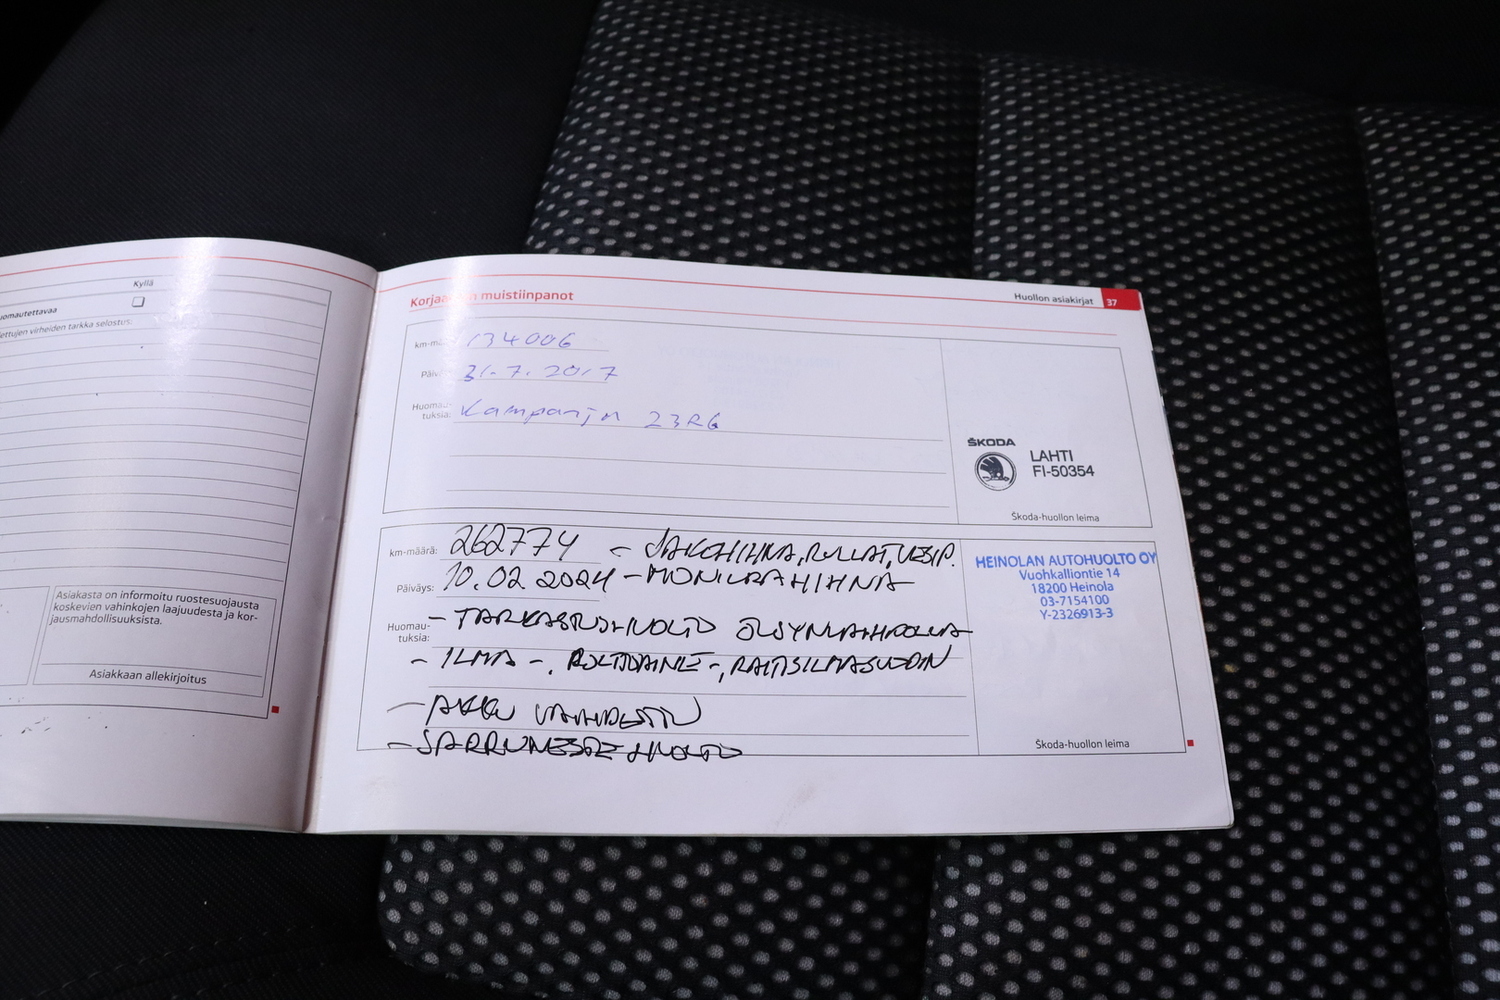 Kyllä
uomautettavaa
ettujen virheiden tarkka selostus:
Asiakasta on informoitu ruostesuojausta
koskevien vahinkojen laajuudesta ja kor-
jausmahdollisuuksista.
Asiakkaan allekirjoitus
Korjaa muistiinpanot
Huollon asiakirjat 37
km-mä 134006
Päiv 31.7.2017
Huomau-
tuksia: Kampanja 23R6
ŠKODA
LAHTI
FI-50354
Škoda-huollon leima
km-määrä: 262774 - JAKOHIHNA, RULLAT, VESIP.
Päiväys: 10.02.2024 - MONIURAHIHNA
Huomau-
tuksia: - TARKASTUSHUOLTO ÖLJYNVAIHDOLLA
- ILMA-, POLTTOAINE-, RAITISILMASUODIN
- AKKU VAIHDETTU
- JARRUNESTE HUOLTO
HEINOLAN AUTOHUOLTO OY
Vuohkalliontie 14
18200 Heinola
03-7154100
Y-2326913-3
Škoda-huollon leima